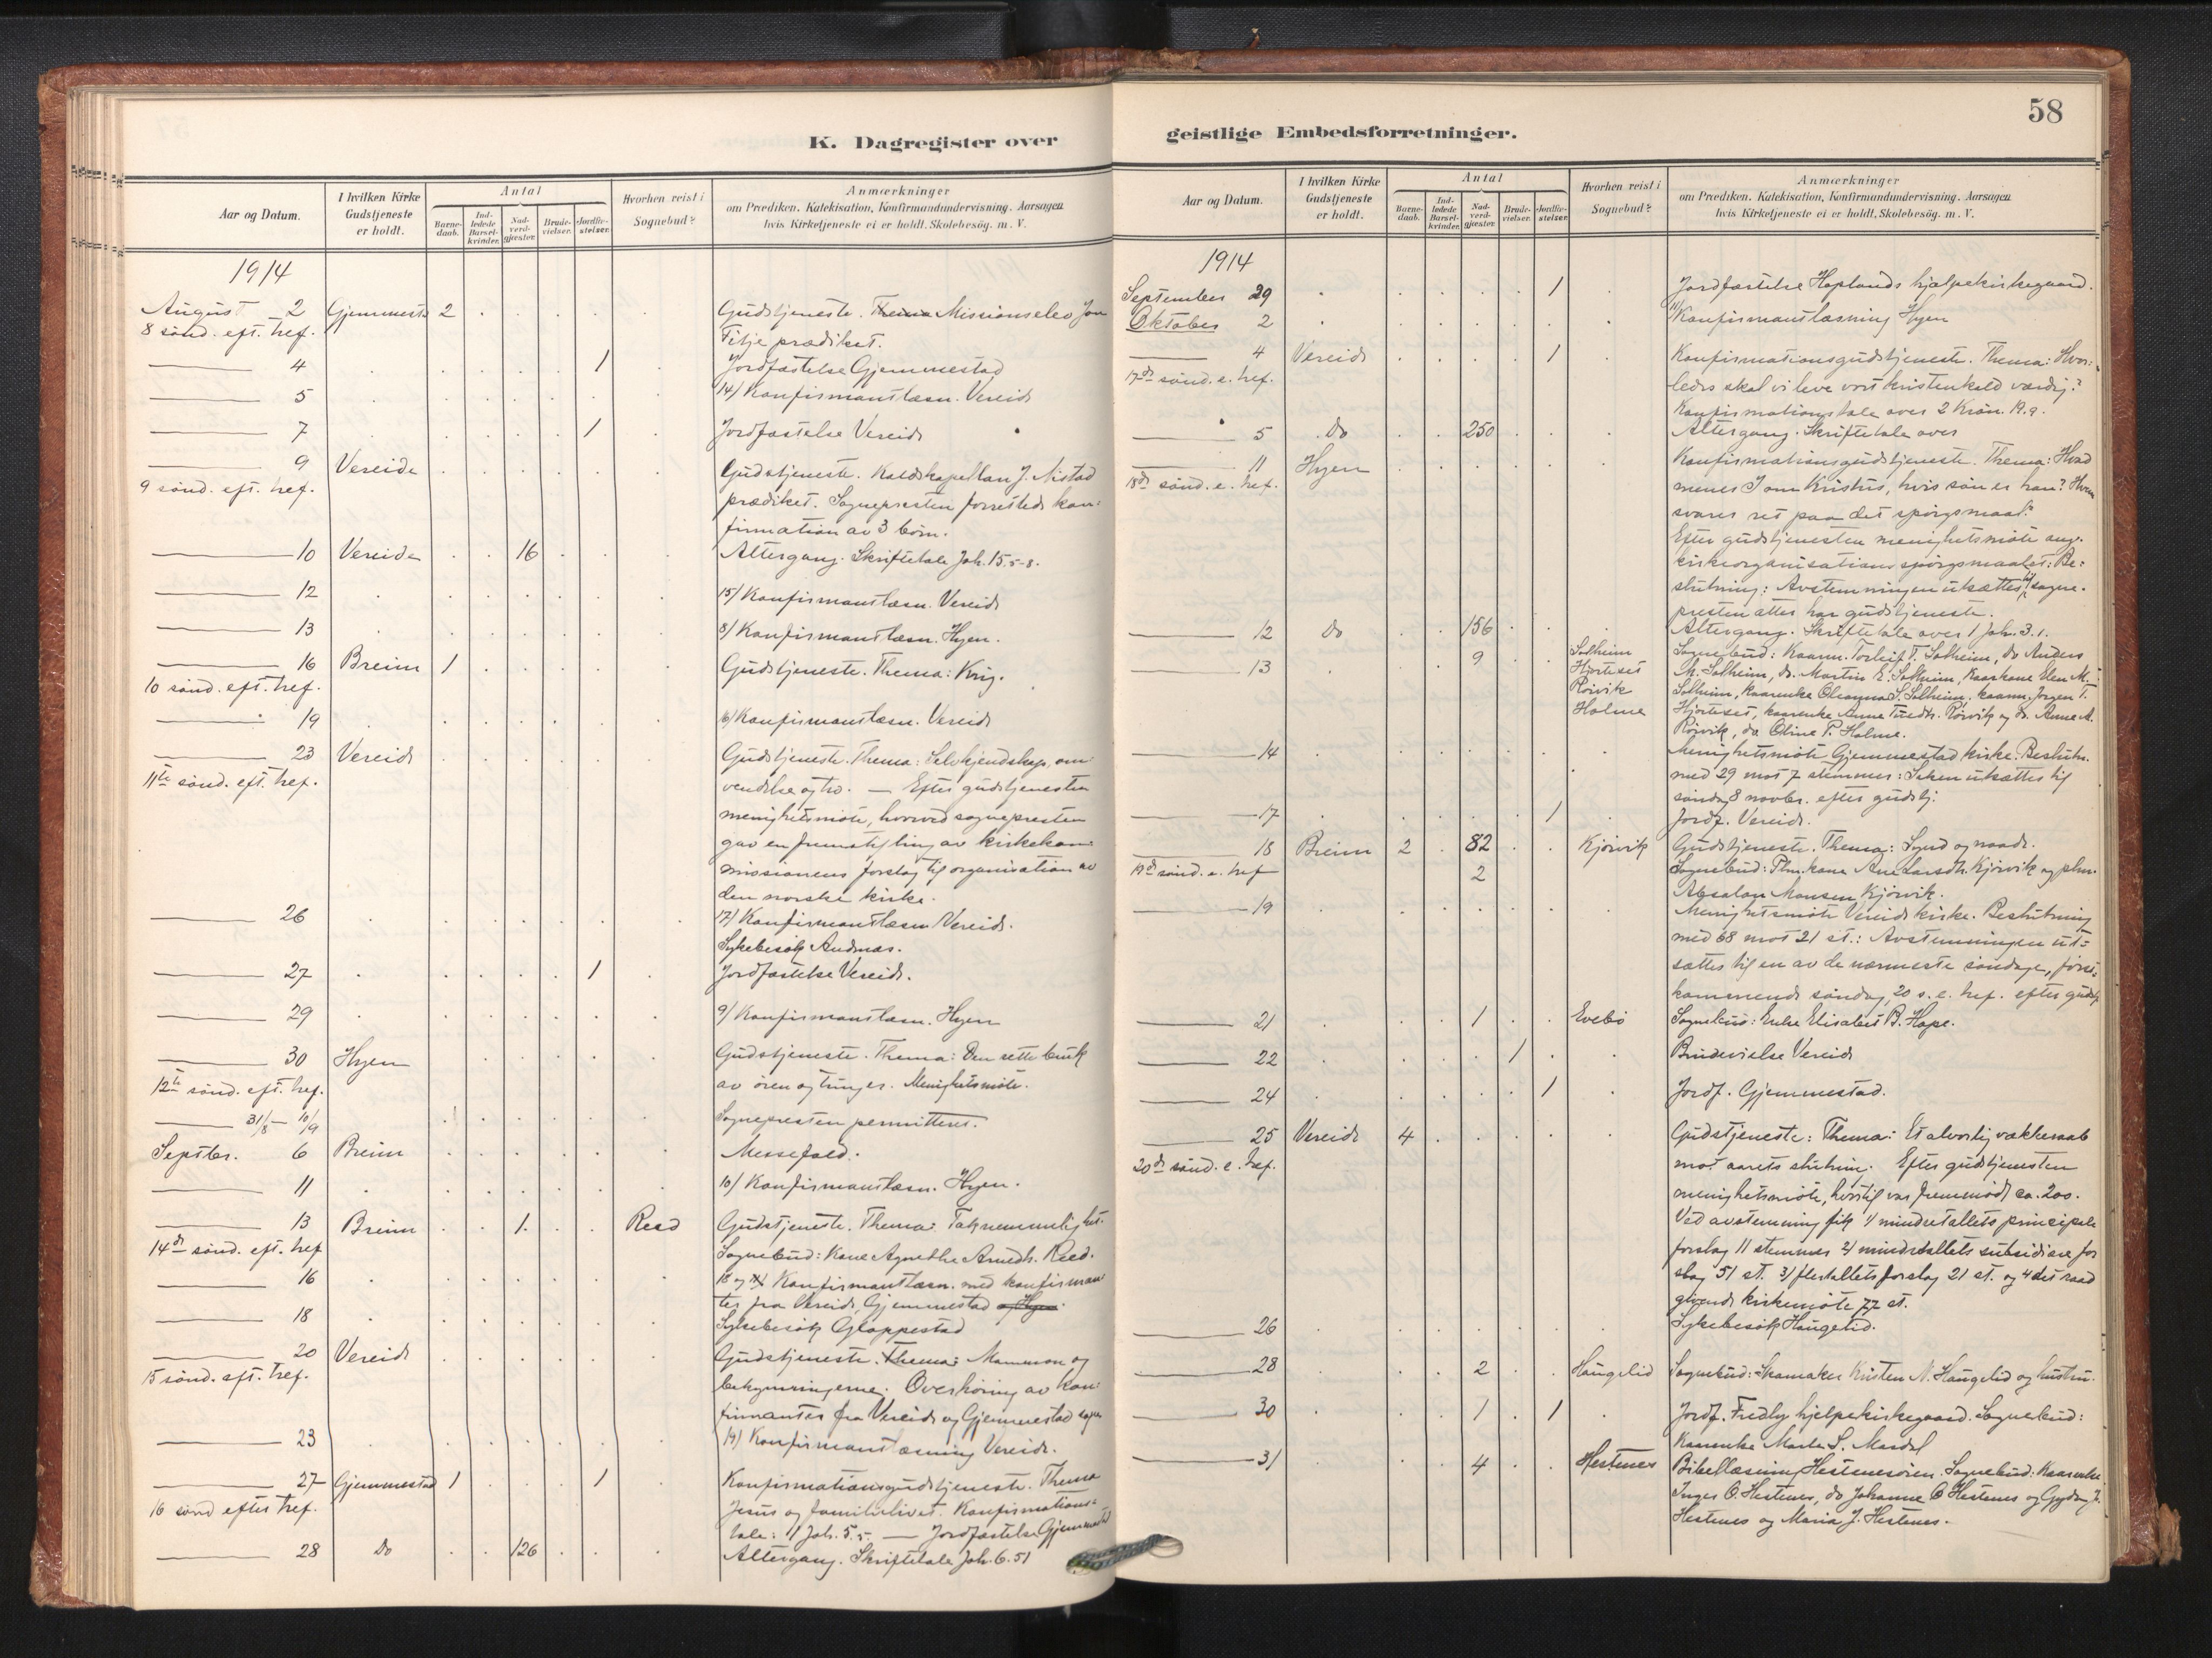 K. Dagregister over
Aar og Datum.
I hvilken Kirke Gudstjeneste er holdt.
Antal
Barnedaab.
Indledede Barselkvinder.
Nadverdgjæster.
Brudevielser.
Jordfæstelser.
Hvorhen reist i Sognebud?
Anmærkninger
om Prædiken. Katekisation, Konfirmandundervisning. Aarsagen
hvis Kirketjeneste ei er holdt. Skolebesög. m. V.
1914
August 2 Gjemmest 2 Gudstjeneste. Thema Missionselev Jon
8 sönd. eft. tref. Fitje prædiket.
4 1 Jordfæstelse Gjemmestad
5 14) Konfirmantlæsn. Vereide
7 1 Jordfæstelse Vereide
9 Vereide Gudstjeneste. Kaldskapellan J. Nistad
9 sönd. eft. tref. prædiket. Sognepresten forrettede kon-
firmation av 3 börn.
10 Vereide 16 Altergang. Skriftetale Joh. 15. 5-8.
12 15) Konfirmantlæsn. Vereide
13 8) Konfirmantlæsn. Hyen.
16 Breim 1 Gudstjeneste. Thema: Krig.
10 sönd. eft. tref.
19 16) Konfirmantlæsn. Vereide
23 Vereide Gudstjeneste. Thema: Selvkjendskap, om-
11te sönd. eft. tref. vendelse og tro. — Efter gudstjenesten
menighetsmöte, hvorved sognepresten
gav en fremstilling av kirkekom-
missionens forslag til organisation av
den norske kirke.
26 17) Konfirmantlæsn Vereide.
Sykebesök Andenæs.
27 1 Jordfæstelse Vereide.
29 9) Konfirmantlæsn. Hyen
30 Hyen Gudstjeneste. Thema: Den rette bruk
12te sönd. eft. tref. av ören og tunger. Menighetsmöte.
31/8 — 10/9 Sognepresten permitteret.
Septbr. 6 Breim Messefald.
11 10) Konfirmantlæsn. Hyen.
13 Breim 1. Reed Gudstjeneste. Thema: Taknemmelighet.
14de sönd. eft. tref Sognebud: Kone Agnethe Arnedtr. Reed.
16 18 og Konfirmantlæsn. med konfirman-
ter fra Vereide, Gjemmestad og Hyen.
18 Sykebesök Gloppestad
20 Vereide Gudstjeneste. Thema: Mammon og
15 sönd. eft. tref. bekymringerne. Overhöring av kon-
firmanter fra Vereide og Gjemmestad sogn
23 19) Konfirmantlæsning Vereide.
27 Gjemmestad 1 1 Konfirmationsgudstjeneste. Thema
16 sönd efter tref. Jesus og familielivet. Konfirmations-
tale: 1 Joh. 5. 5. — Jordfæstelse Gjemmestad
28 Do 126 Altergang. Skriftetale Joh. 6. 51
58
geistlige Embedsforretninger.
Aar og Datum.
I hvilken Kirke Gudstjeneste er holdt.
Antal
Barnedaab.
Indledede Barselkvinder.
Nadverdgjæster.
Brudevielser.
Jordfæstelser.
Hvorhen reist i Sognebud?
Anmærkninger
om Prædiken. Katekisation, Konfirmandundervisning. Aarsagen
hvis Kirketjeneste ei er holdt. Skolebesög. m. V.
1914
September 29 1 Jordfæstelse Hoplands hjælpekirkegaard.
Oktober 2 11) Konfirmantlæsning Hyen
4 Vereide 1 Konfirmationsgudstjeneste. Thema: Hvor-
17de sönd. e. tref. ledes skal vi leve vort kristenkald værdig?
Konfirmationstale over 2 Krön. 19. 9.
5 Do 250 Altergang. Skriftetale over
11 Hyen Konfirmationsgudstjeneste. Thema: Hvad
18de sönd. e. tref. menes I om Kristus, hvis sön er han? Hvem
svarer ret paa det spörgsmaal?
Efter gudstjenesten menighetsmöte ang.
kirkeorganisationsspörgsmaalet: Be-
slutning: Avstemningen utsættes til sogne-
presten atter har gudstjeneste.
12 Do 156 Altergang. Skriftetale over 1 Joh. 3. 1.
13 9 Solheim Sognebud: Kaarm. Torleif T. Solheim, do Anders
Hjorteset M. Solheim, do. Martin E. Solheim, Kaarkone Elen M.
Röivik Solheim, kaarenke Oleanna S. Solheim, kaarm. Jorgen T.
Holme Hjorteset, kaarenke Anne Röivik og do. Anne A.
Röivik, do Oline P. Holme.
14 Menighetsmöte Gjemmestad kirke. Beslutn.
med 29 mot 7 stemmer: Saken utsættes til
söndag 8 novbr. efter gudstj.
17 1 Jordf. Vereide.
18 Breim 2 82 Kjörvik Gudstjeneste. Thema: Synd og naade.
19de sönd. e. tref 2 Sognebud: Plm. kone Ane Larsdtr. Kjörvik og plm.
Absalon Monsen Kjörvik.
19 Menighetsmöte Vereide kirke. Beslutning
med 68 mot 21 st.: Avstemningen ut-
sættes til en av de nærmeste söndage, först-
kommende söndag, 20 s. e. tref. efter gudstj.
21 1 Evebö Sognebud: Enke Elisabet B. Hope.
22 1 Brudevielse Vereide
24 1 Jordf. Gjemmestad.
25 Vereide 4 Gudstjeneste: Thema: Et alvorlig vækkeraab
20de sönd. e. tref. mot aarets slutning. Efter gudstjenesten
menighetsmöte, hvortil var fremmödt ca. 200.
Ved avstemning fik 1) mindretallets principale
forslag 11 stemmer 2) mindretallets subsidiære for
slag 51 st. 3) flertallets forslag 21 st. og 4 det raad
givende kirkemöte 77 st.
26 Sykebesök Haugelid.
28 2 Haugelid Sognebud: Skomaker Kristen N. Haugelid og hustru.
30 1 1 Jordf. Fredly hjelpekirkegaard. Sognebud:
Kaarenke Marta S. Mardal
31 4 Hestenes Bibellæsning Hestenesören. Sognebud: Kaarenke
Inger O. Hestenes, do Johanne O Hestenes og Gyda J.
Hestenes og Maria J. Hestenes.